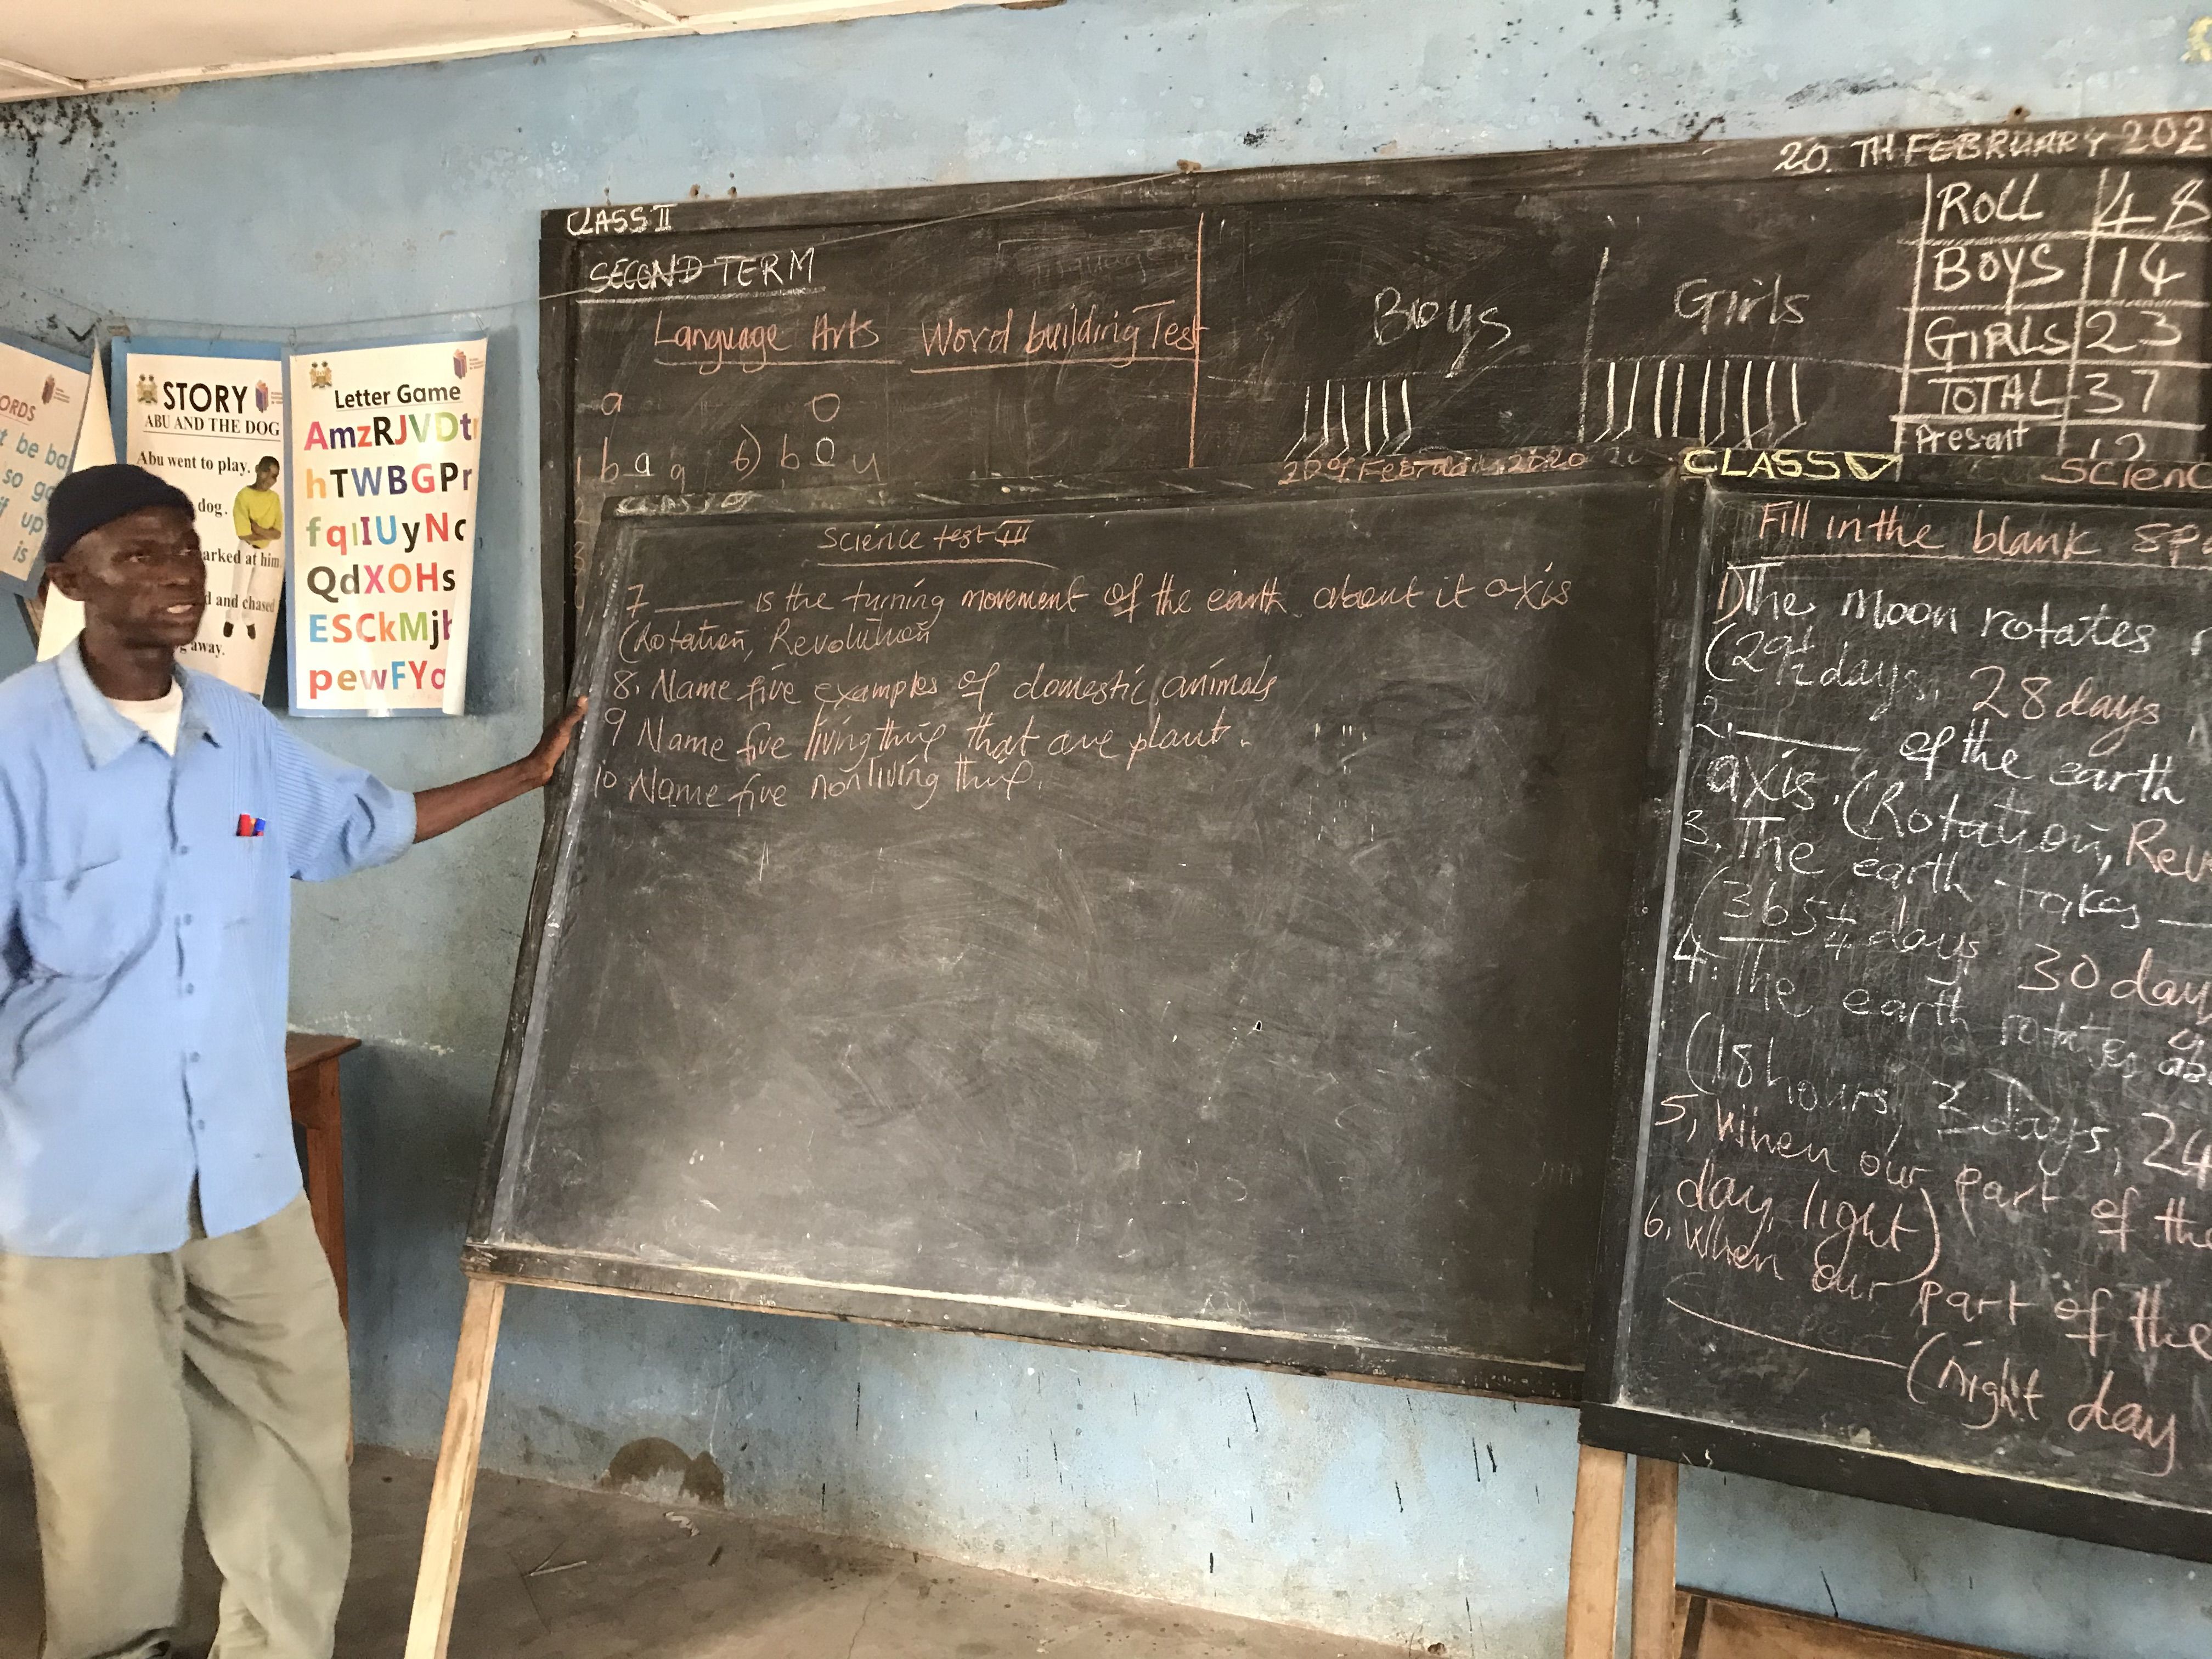 20. TH FEBRUARY 202
CLASS II
SECOND TERM
Language Arts Word building Test
a o
1 b a g 6) b o y
Boys Girls
ROLL 48
BOYS 14
GIRLS 23
TOTAL 37
Present
ORDS
t be ba
so go
if up
is
STORY
ABU AND THE DOG
Abu went to play.
dog.
arked at him
d and chased
away.
Letter Game
AmzRJVDt
hTWBGPr
fqlIUyNc
QdXOHs
ESCkMj
pewFYa
Science test III
7 ____ is the turning movement of the earth about it axis
(Rotation, Revolution
8. Name five examples of domestic animals
9 Name five living thing that are plant.
10 Name five nonliving thing.
CLASS V Scienc
Fill in the blank sp
1) The moon rotates
(29½ days, 28 days
2. ____ of the earth
axis. (Rotation, Rev
3. The earth takes __
(365¼ days 30 day
4. The earth rotates
(18 hours, 2 days, 24
5, When our part of the
day, light)
6, When our part of the
____ (night day